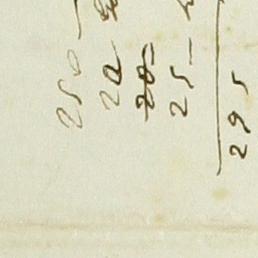 250
20
20
25
295